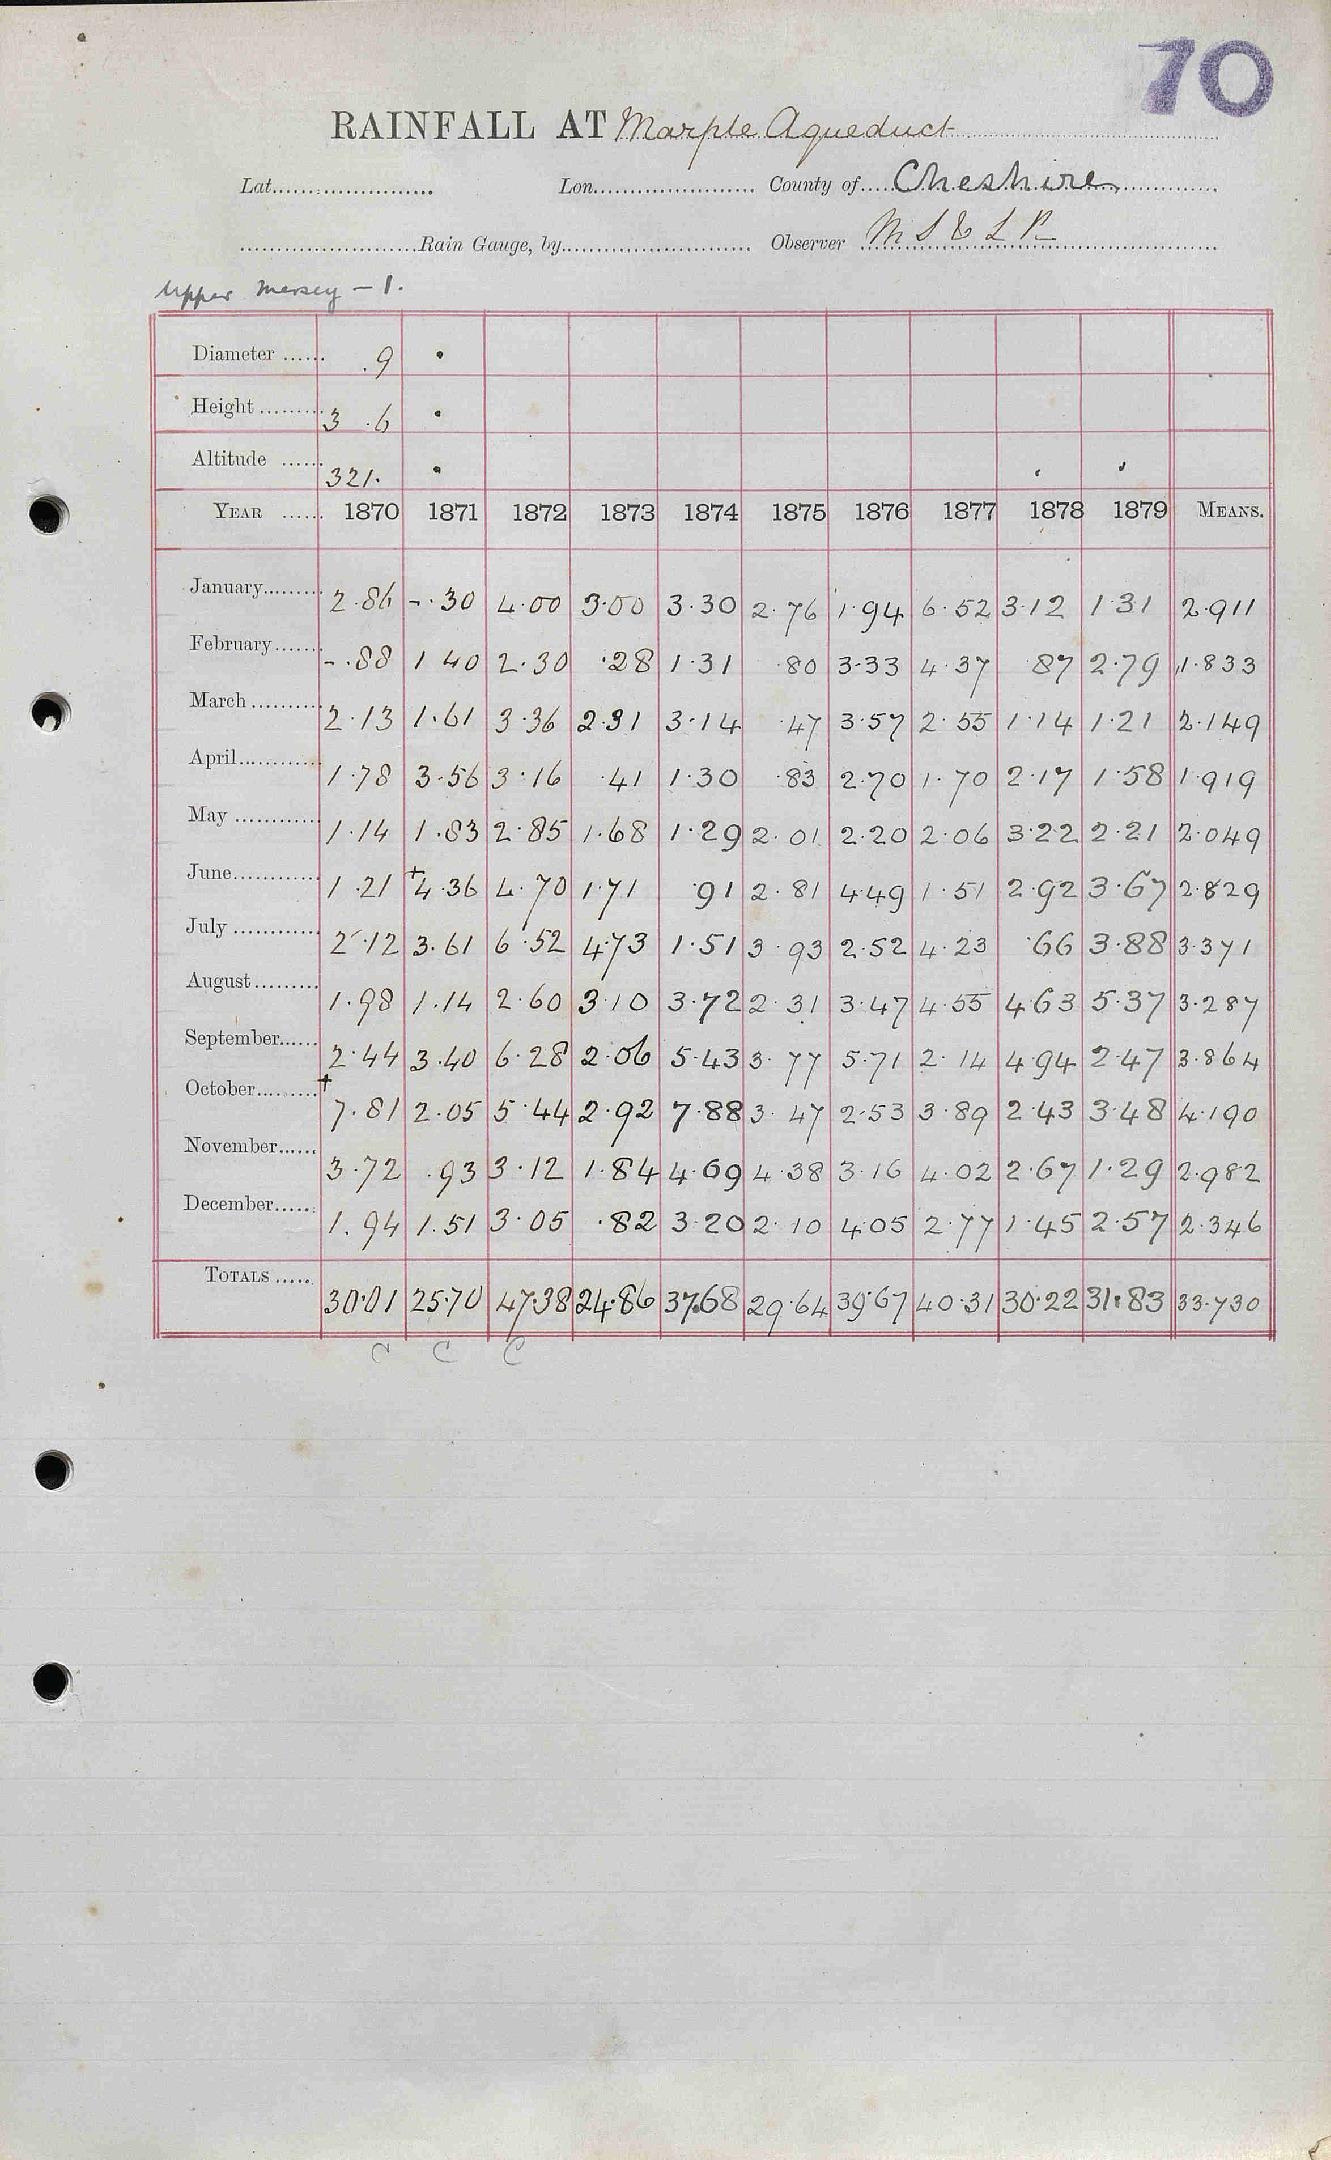 70
RAINFALL AT Marple Aqueduct
Lat. Lon. County of Cheshire
Rain Gauge, by Observer M S & L R
Upper Mersey – 1.
Diameter .9 •
Height 3 .6 •
Altitude 321. •
YEAR 1870 1871 1872 1873 1874 1875 1876 1877 1878 1879 MEANS.
January 2.86 -.30 4.00 3.00 3.30 2.76 1.94 6.52 3.12 1.31 2.911
February -.88 1.40 2.30 .28 1.31 .80 3.33 4.37 .87 2.79 1.833
March 2.13 1.61 3.36 2.31 3.14 .47 3.57 2.55 1.14 1.21 2.149
April 1.78 3.56 3.16 .41 1.30 .83 2.70 1.70 2.17 1.58 1.919
May 1.14 1.83 2.85 1.68 1.29 2.01 2.20 2.06 3.22 2.21 2.049
June 1.21 +4.36 4.70 1.71 .91 2.81 4.49 1.51 2.92 3.67 2.829
July 2.12 3.61 6.52 4.73 1.51 3.93 2.52 4.23 .66 3.88 3.371
August 1.98 1.14 2.60 3.10 3.72 2.31 3.47 4.55 4.63 5.37 3.287
September 2.44 3.40 6.28 2.06 5.43 3.77 5.71 2.14 4.94 2.47 3.864
October +7.81 2.05 5.44 2.92 7.88 3.47 2.53 3.89 2.43 3.48 4.190
November 3.72 .93 3.12 1.84 4.69 4.38 3.16 4.02 2.67 1.29 2.982
December 1.94 1.51 3.05 .82 3.20 2.10 4.05 2.77 1.45 2.57 2.346
TOTALS 30.01 25.70 47.38 24.86 37.68 29.64 39.67 40.31 30.22 31.83 33.730
C C C